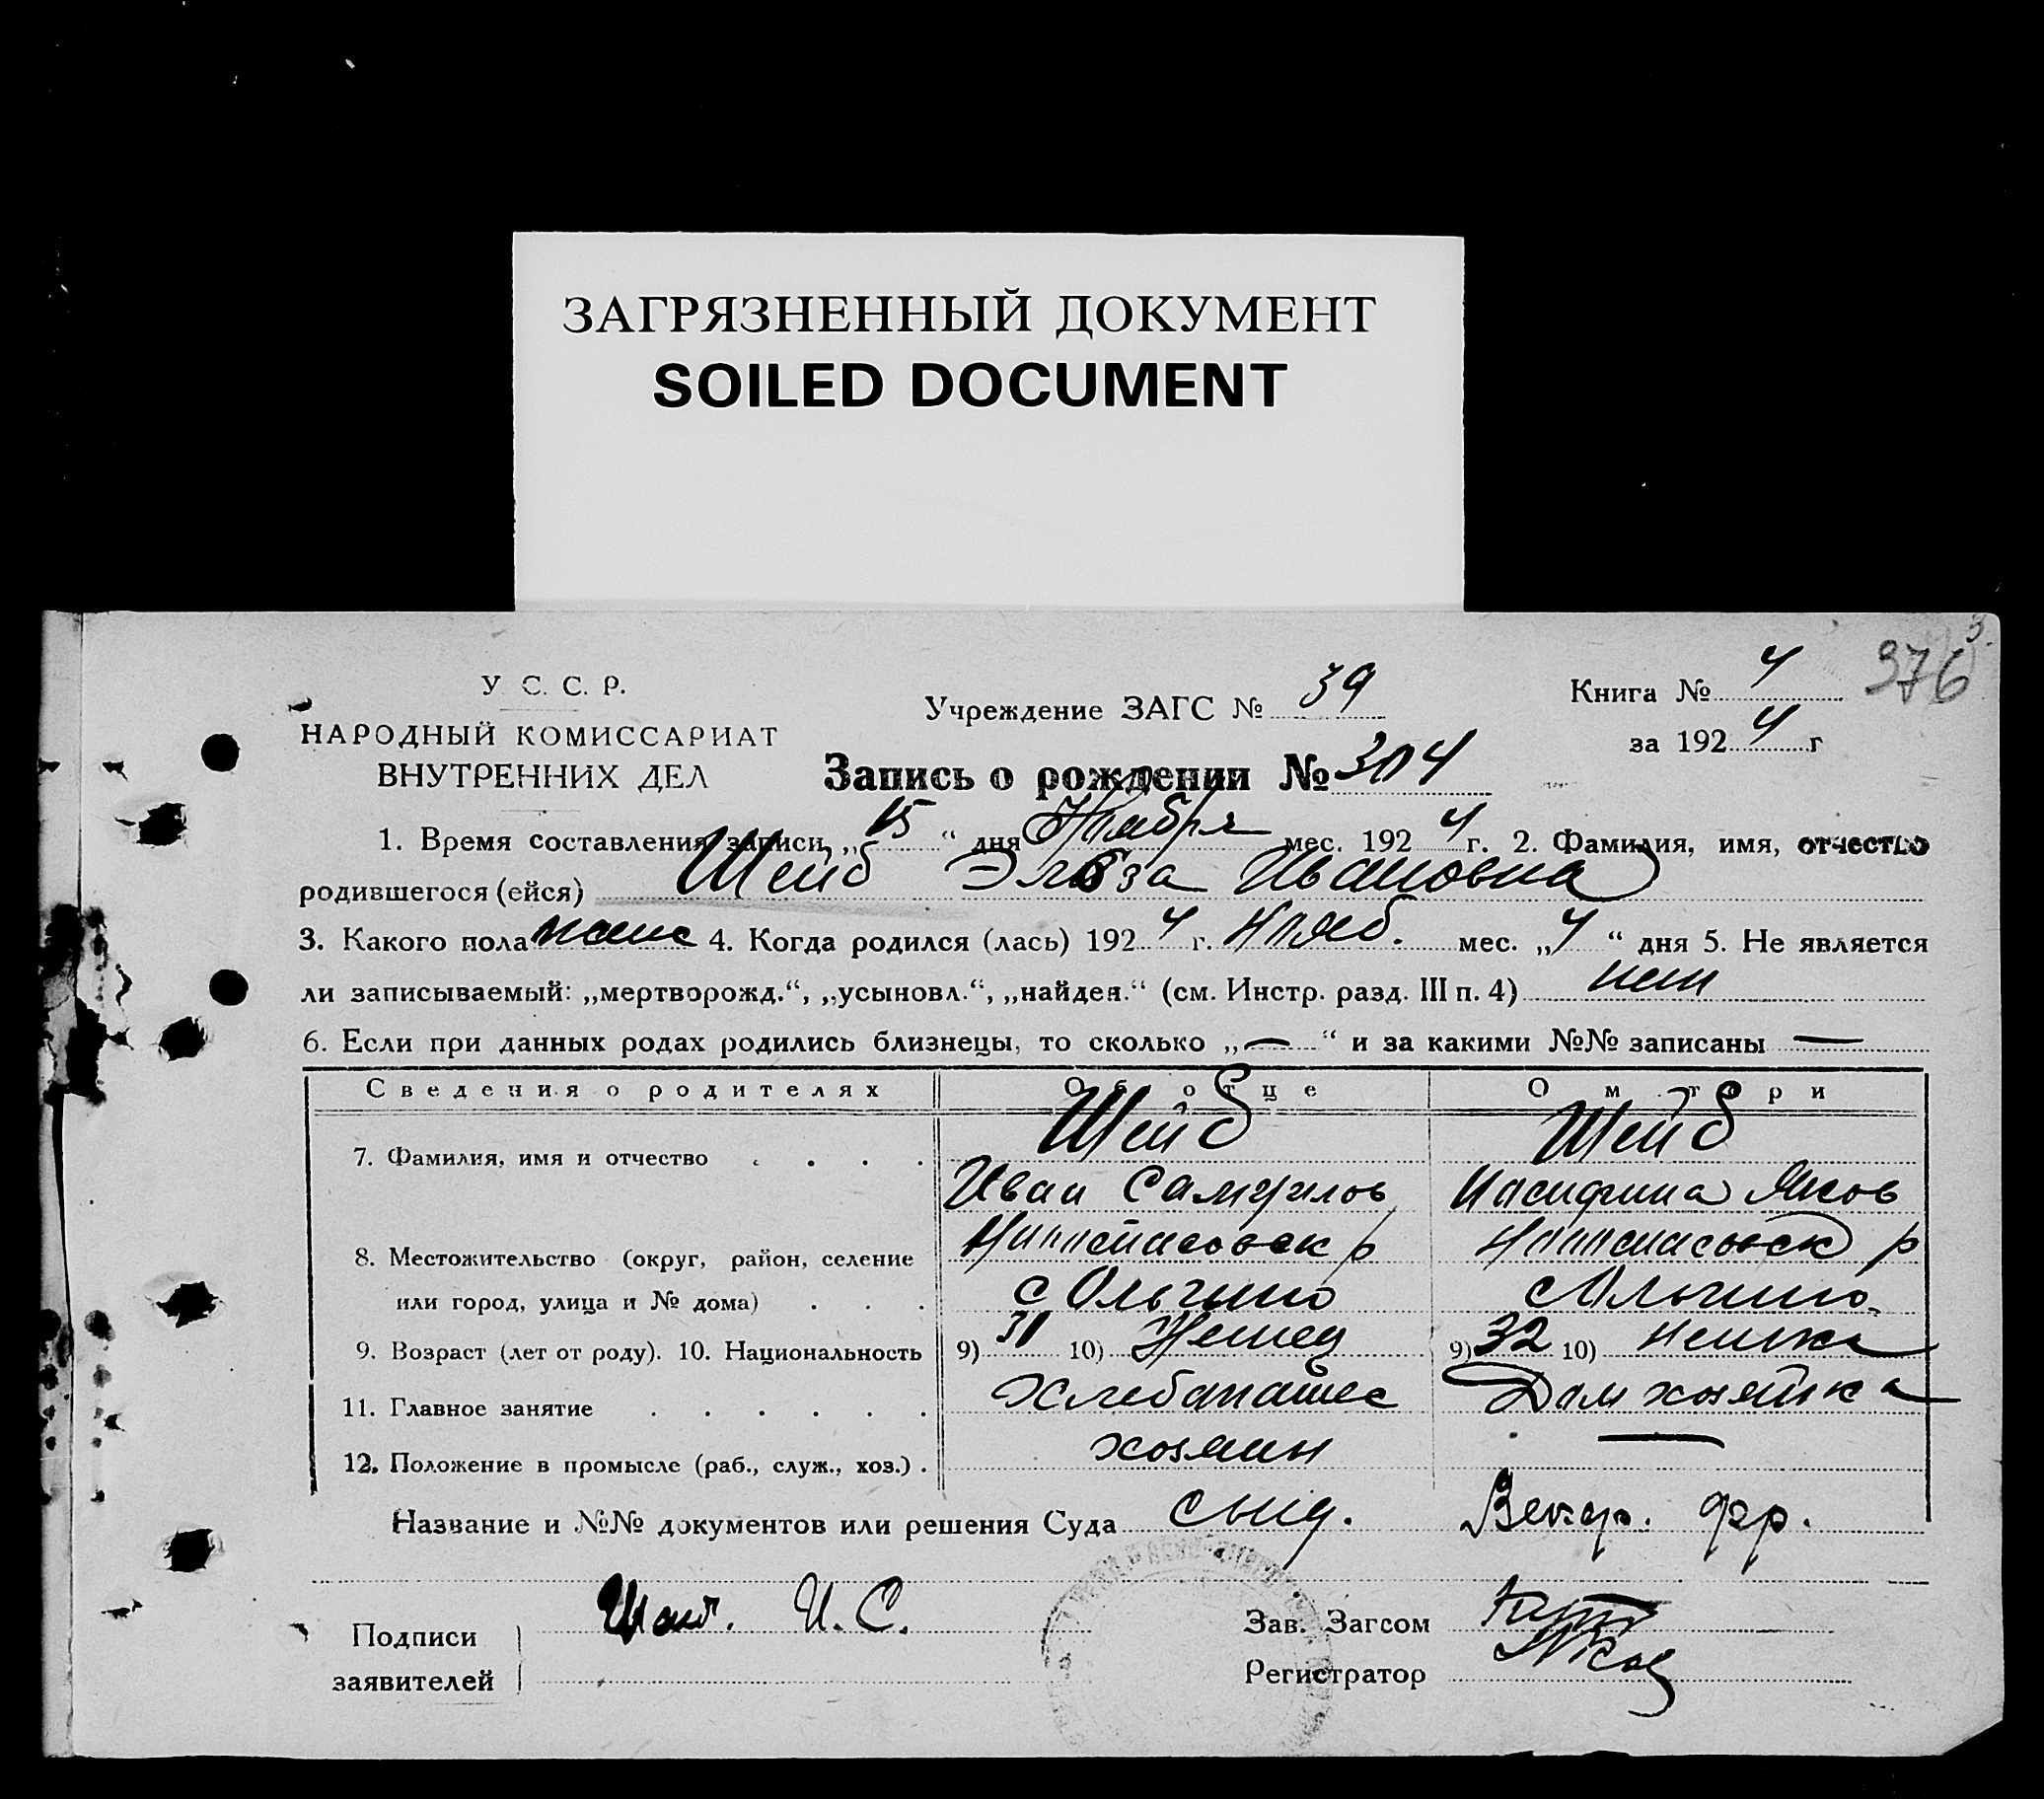 ЗАГРЯЗНЕННЫЙ ДОКУМЕНТ
SOILED DOCUMENT
376
У С. С. Р.
НАРОДНЫЙ КОМИССАРИАТ
ВНУТРЕННИХ ДЕЛ
Учреждение ЗАГС № 39
Книга № 4
за 192 4 г
Запись о рождении № 304
1. Время составления записи „ 15 “ дня Ноября мес. 192 4 г. 2. Фамилия, имя, отчество
родившегося (ейся) Шейб Эльза Ивановна
3. Какого пола женс 4. Когда родился (лась) 192 4 г. Нояб. мес. „ 4 “ дня 5. Не является
ли записываемый: „мертворожд.“, „усыновл.“, „найден.“ (см. Инстр. разд. III п. 4) нет
6. Если при данных родах родились близнецы, то сколько „ — “ и за какими №№ записаны —
Сведения о родителях Об отце О матери
7. Фамилия, имя и отчество . . . . Шейб Шейб
Иван Самуилов Иосифина Яков
8. Местожительство (округ, район, селение р р
или город, улица и № дома) . . . с Ольгино с Ольгино
9. Возраст (лет от роду). 10. Национальность 9) 31 10) Немец 9) 32 10) немка
11. Главное занятие . . . . . . Хлебопашес Дом хозяйка
12. Положение в промысле (раб., служ., хоз.) . хозяин —
Название и №№ документов или решения Суда
Подписи
заявителей
И. С.
Зав. Загсом
Регистратор